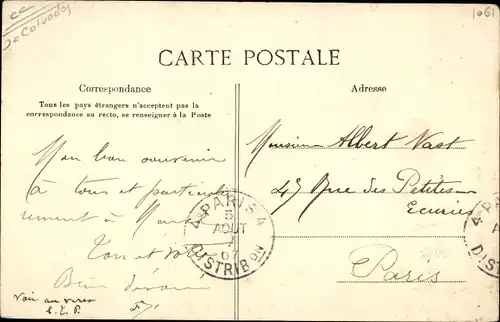 1061
Calvados
CARTE POSTALE
Correspondance
Tous les pays étrangers n'acceptent pas la
correspondance au recto, se renseigner à la Poste
Mon bon souvenir
à tous et particuliè
rement à
Bien
Voir au verso
Adresse
Monsieur Albert Vast
45 Rue des Petites
Ecuries
Paris
PARIS 4
5
AOUT
07
DISTRIBON
4 PA
A
DIST